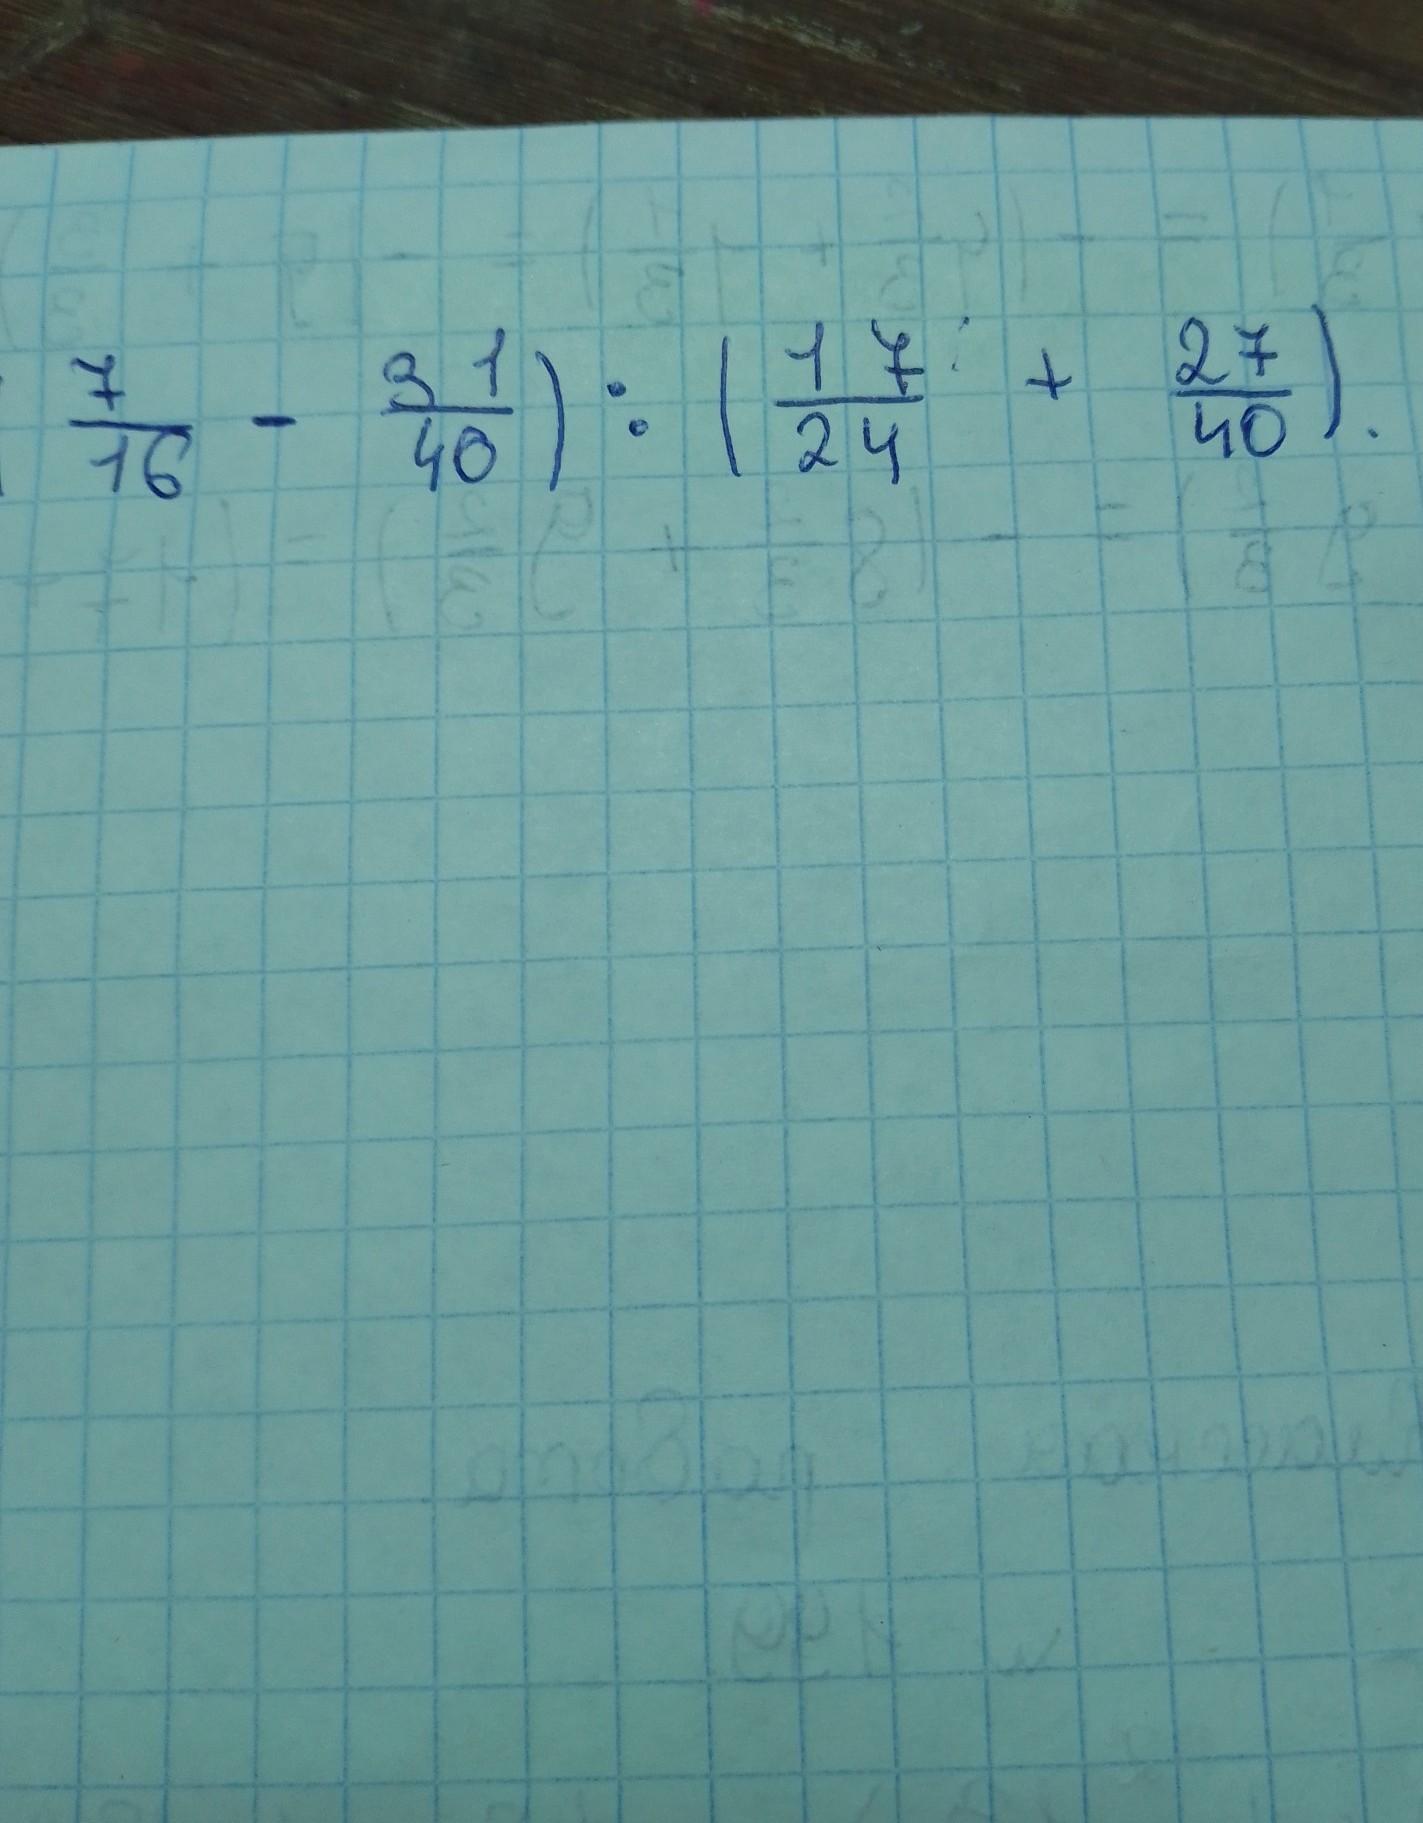 ( 7/16 - 31/40 ) : ( 17/24 + 27/40 ).